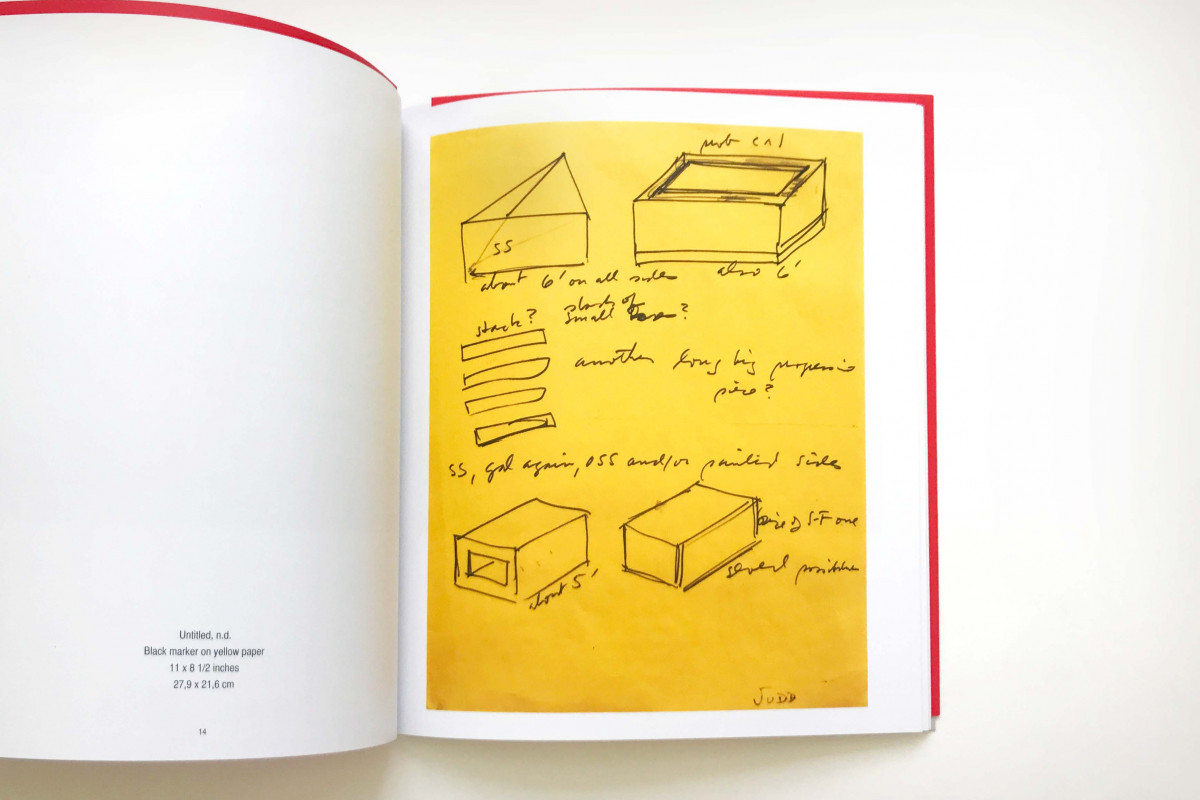 Untitled, n.d.
Black marker on yellow paper
11 x 8 1/2 inches
27,9 x 21,6 cm
14
SS
about 6' on all sides
also 6'
stack?
small ?
another long big
piece?
SS, gal again, and/or painted sides
about 5'
of S-F one
several
JUDD